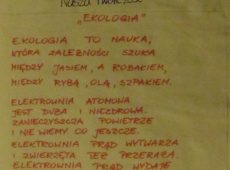 Nasza Twórczość
„EKOLOGIA"
EKOLOGIA TO NAUKA,
KTÓRA ZALEŻNOŚCI SZUKA
MIĘDZY JASIEM, A ROBAKIEM,
MIĘDZY RYBĄ, OLĄ, SZPAKIEM.
ELEKTROWNIA ATOMOWA
JEST DUŻA I NIEZDROWA.
ZANIECZYSZCZA POWIETRZE
I NIE WIEMY CO JESZCZE.
ELEKTROWNIA PRĄD WYTWARZA
I ZWIERZĘTA TEŻ PRZERAŻA.
ELEKTROWNIA PRĄD WYDAJE